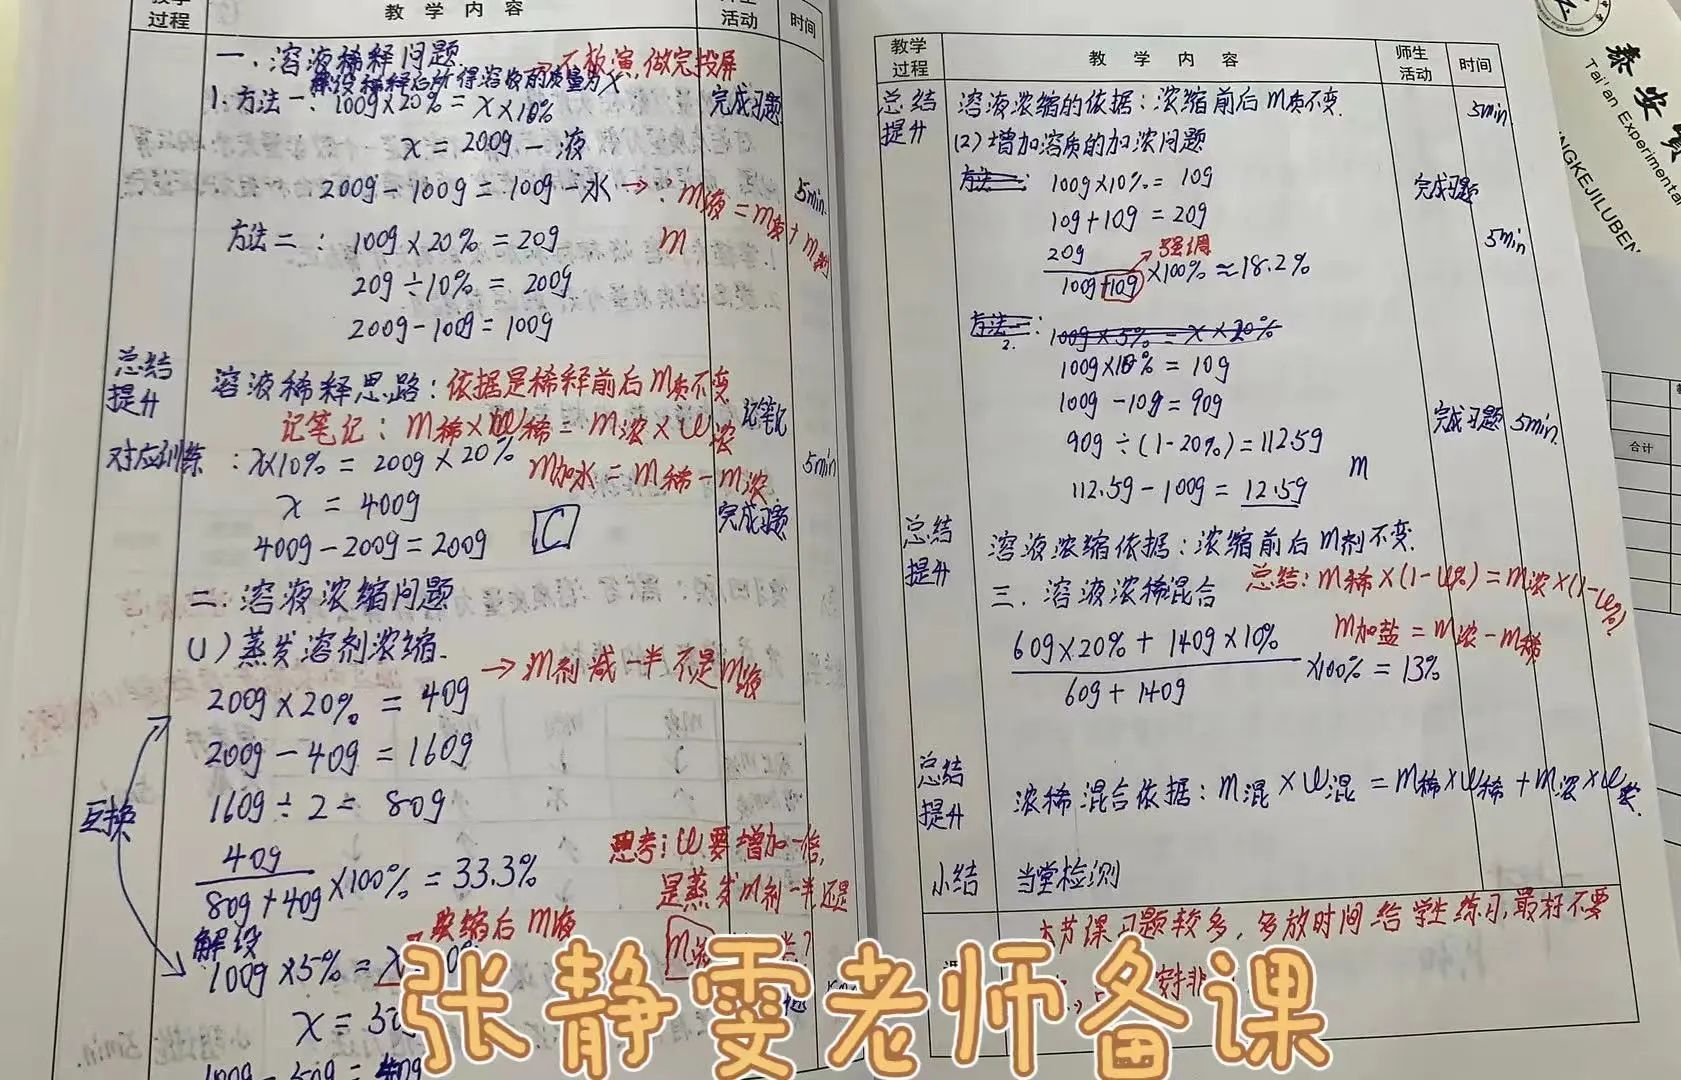 教学过程
教 学 内 容
师生活动
时间
一、溶液稀释问题
不板演,做完投屏
解设稀释后所得溶液的质量为x
1.方法一:100g×20% = x×10%
完成习题
x = 200g — 液
200g-100g = 100g — 水 → ∵ m液 = m质 + m剂
5min.
方法二: 100g×20% = 20g
m
20g÷10% = 200g
200g-100g = 100g
总结提升
溶液稀释思路:依据是稀释前后m质不变
记笔记: m稀×w稀 = m浓×w浓
记笔记
对应训练: x×10% = 200g×20%
m加水 = m稀-m浓
5min
x = 400g
完成习题
400g-200g=200g
C
二.溶液浓缩问题
(1)蒸发溶剂浓缩.
→ m剂减一半不是m液
200g×20% = 40g
200g-40g = 160g
160g÷2 = 80g
互换
40g
80g+40g ×100% = 33.3%
思考:w要增加一倍,
是蒸发m剂一半还是
解设
浓缩后m液
100g×5% = x
x = 50g
100g-50g =
教学过程
教 学 内 容
师生活动
时间
总结提升
溶液浓缩的依据:浓缩前后m质不变.
5min
(2)增加溶质的加浓问题
方法一: 100g×10% = 10g
完成习题
10g+10g = 20g
5min
强调
20g
100g+10g ×100% ≈ 18.2%
方法二: 100g×5% = x×20%
2.
100g×10% = 10g
100g-10g = 90g
完成习题
5min.
90g÷(1-20%)=112.5g
m
112.5g-100g = 12.5g
总结提升
溶液浓缩依据:浓缩前后m剂不变.
总结:m稀×(1-w%)=m浓×(1-w%)
三.溶液浓稀混合
m加盐 = m浓-m稀
60g×20% + 140g×10%
60g+140g ×100% = 13%
总结提升
浓稀混合依据:m混×w混 = m稀×w稀 + m浓×w浓
小结
当堂检测
本节课习题较多,多放时间给学生练习,最好不要
张静雯老师备课
泰安实
Tai'an Experimental
NGKEJILUBEN
合计